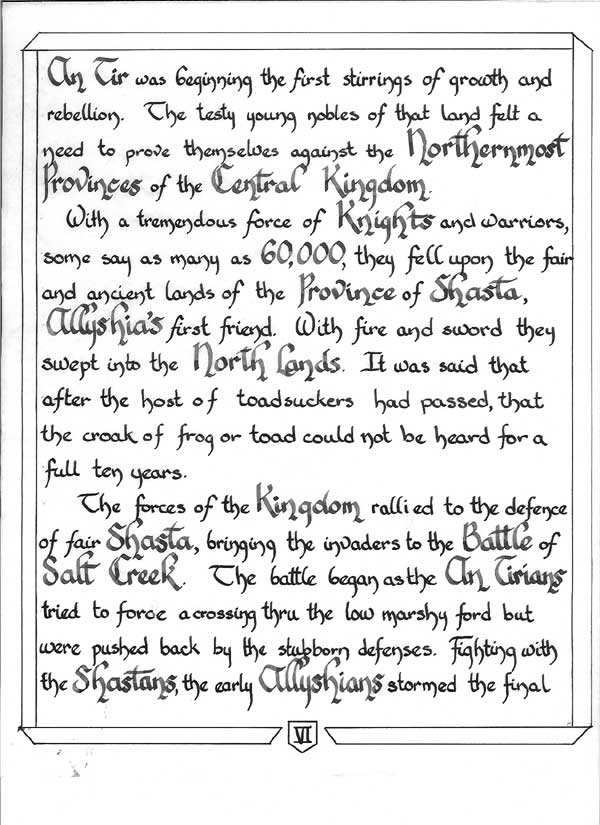 An Tir was beginning the first stirrings of growth and
rebellion. The testy young nobles of that land felt a
need to prove themselves against the Northernmost
Provinces of the Central Kingdom.
With a tremendous force of Knights and warriors,
some say as many as 60,000, they fell upon the fair
and ancient lands of the Province of Shasta,
Allyshia's first friend. With fire and sword they
swept into the North Lands. It was said that
after the host of toadsuckers had passed, that
the croak of frog or toad could not be heard for a
full ten years.
The forces of the Kingdom rallied to the defence
of fair Shasta, bringing the invaders to the Battle of
Salt Creek. The battle began as the An Tirians
tried to force a crossing thru the low marshy ford but
were pushed back by the stubborn defenses. Fighting with
the Shastans, the early Allyshians stormed the final
VI